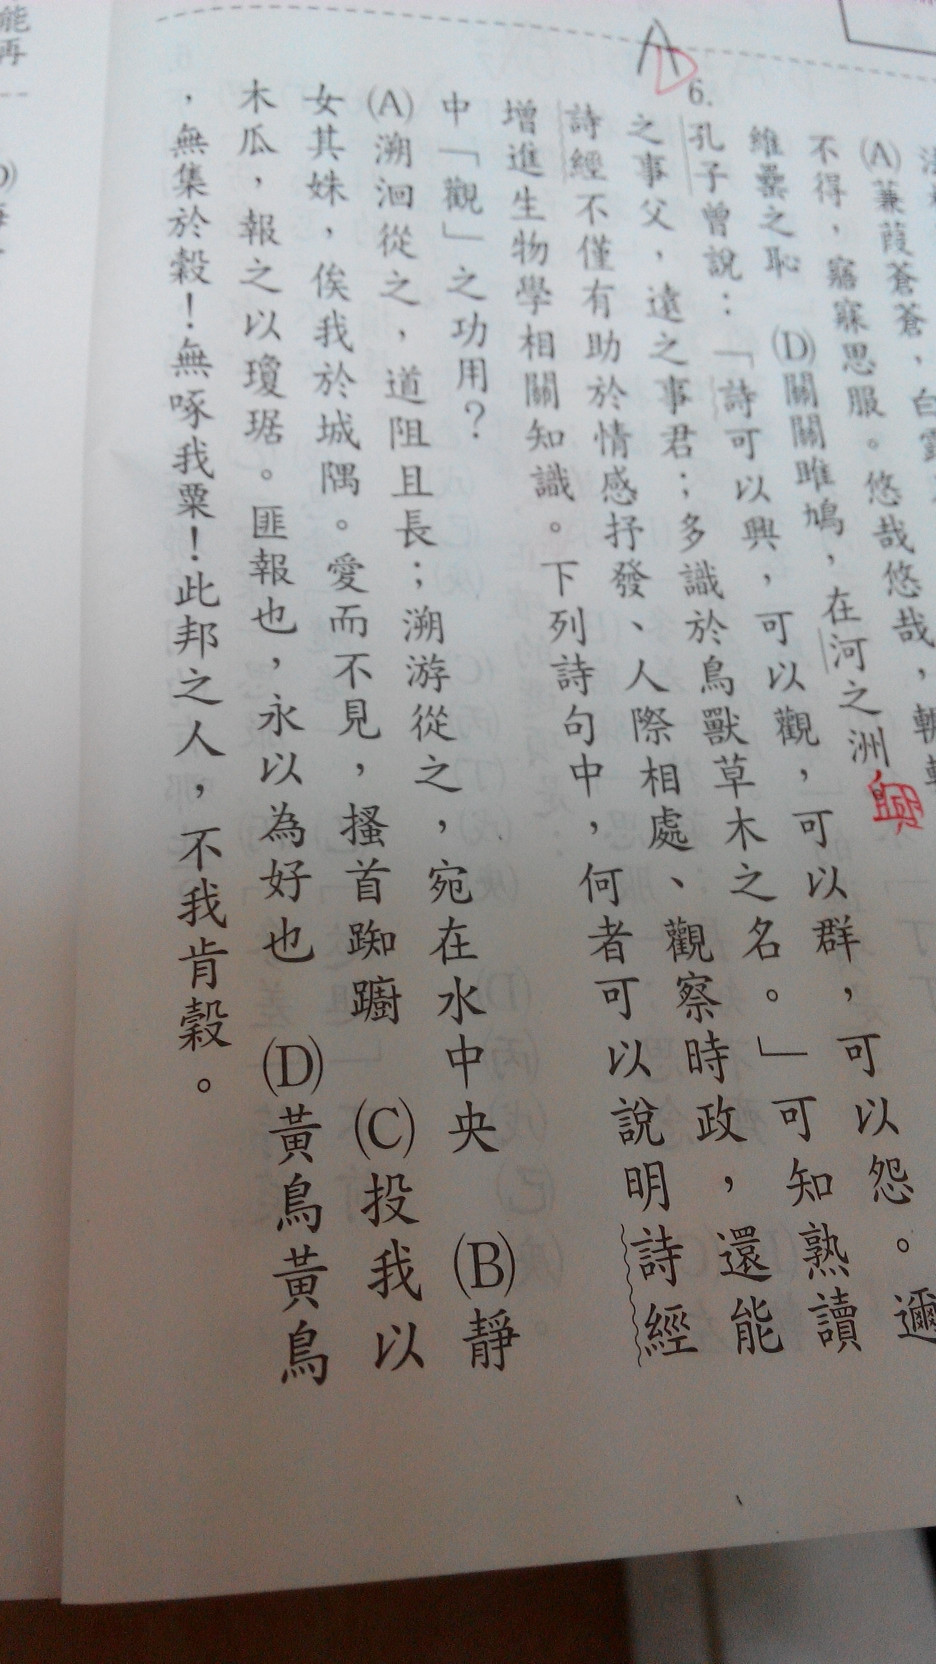 (A)蒹葭蒼蒼，白露
不得，寤寐思服。悠哉悠哉，輾
維罍之恥　(D)關關雎鳩，在河之洲
興
A
D
6.孔子曾說：「詩可以興，可以觀，可以群，可以怨。邇
之事父，遠之事君；多識於鳥獸草木之名。」可知熟讀
詩經不僅有助於情感抒發、人際相處、觀察時政，還能
增進生物學相關知識。下列詩句中，何者可以說明詩經
中「觀」之功用？
(A)溯洄從之，道阻且長；溯游從之，宛在水中央　(B)靜
女其姝，俟我於城隅。愛而不見，搔首踟躕　(C)投我以
木瓜，報之以瓊琚。匪報也，永以為好也　(D)黃鳥黃鳥
，無集於穀！無啄我粟！此邦之人，不我肯穀。
能再